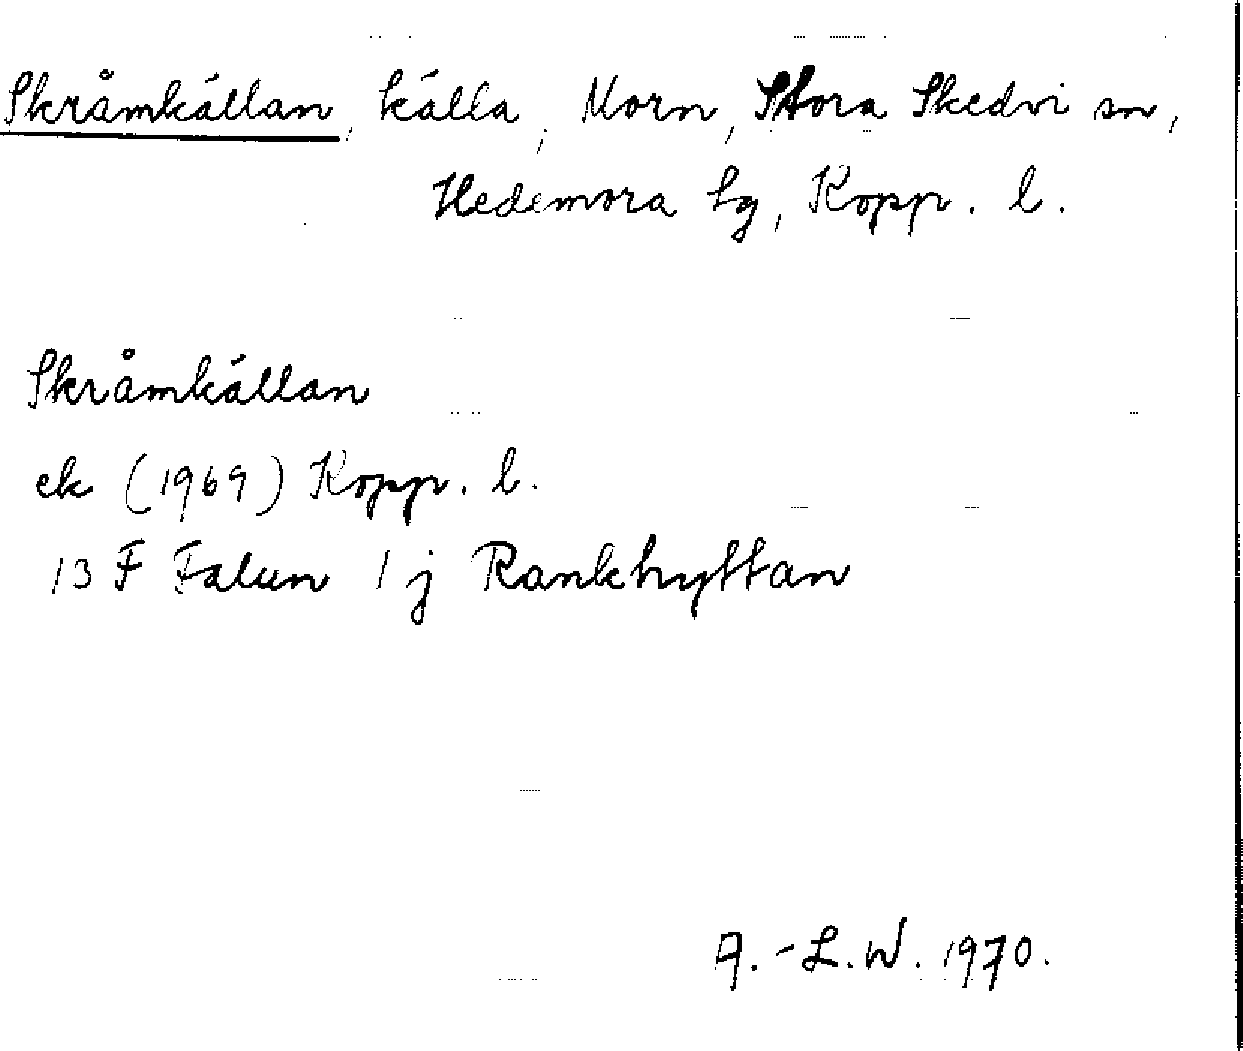 Skråmkällan, källa, Norn, Stora Skedvi sn,
Hedemora tg, Kopp. l.
Skråmkällan
ek (1969) Kopp. l.
13 F Falun 1 j Rankhyttan
A.-L.W. 1970.